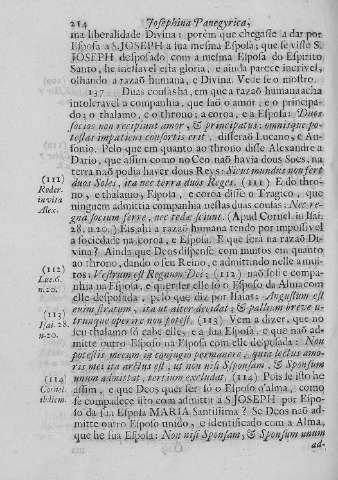 214 Josephina Panegyrica,
ma liberalidade Divina: porèm que chegasse a dar por
Esposa a S.JOSEPH a sua mesma Esposa; que se visse S.
JOSEPH desposado com a mesma Esposa do Espirito
Santo, he inefavel esta gloria, e ainda parece incrivel,
olhando a razaõ humana, e Divina. Vede se o mostro.
137 Duas cousas ha, em que a razaõ humana acha
intoleravel a companhia, que saõ o amor, e o principa-
do; o thalamo, e o throno; a coroa, e a Esposa: Duos
socios non recipiunt amor, & principatus: omnisque po-
testas impatiens consortis erit, disseraõ Lucano, e Au-
sonio. Pelo que em quanto ao throno disse Alexandre a
Dario, que assim como no Ceo naõ havia dous Soes, na
terra naõ podia haver dous Reys: Sicut mundus non feret
duos Soles, ita nec terra duos Reges. (111) E do thro-
no, e thalamo, Esposa, e coroa disse o Tragico, que
ninguem admittia companhia nestas duas cousas: Nec re-
gna socium ferre, nec tedæ sciunt. (Apud Cornel. in Isai.
28. n.20.) Eis ahi a razaõ humana tendo por impossivel
a sociedade na coroa, e Esposa. E que serà na razaõ Di-
vina? Ainda que Deos dispense com muitos em quanto
ao throno, dando o seu Reino, e admittindo nelle a mui-
tos. Vestrum est Regnum Dei; (112) naõ sofre compa-
nhia na Esposa, e quer ser elle só o Esposo da Alma com
elle desposada, pelo que diz por Isaias: Angustum est
enim stratum, ita ut alter decidat, & pallium breve u-
trunque operire non potest. (113) Vem a dizer, que no
seu thalamo só cabe elle, e a sua Esposa, e que naõ ad-
mitte outro Esposo na Esposa com elle desposada: Non
potestis mecum in conjugio permanere, quia lectus amo-
ris mei ita arctus est, ut non nisi Sponsam, & Sponsum
unum admittat, tertium excludat. (114) Pois se isso he
assim, e que Deos quer ser só o Esposo d'alma, como
se compadece isto com admittir a S.JOSEPH por Espo-
so da sua Esposa MARIA Santissima? Se Deos naõ ad-
mitte outro Esposo unido, e identificado com a Alma,
que he sua Esposa: Non nisi Sponsam, & Sponsum unum
ad-
(111)
Roder.
in vita
Alex.
(112)
Luc.6.
n.20.
(113)
Isai. 28.
n.20.
(114)
Cornel.
ibidem.